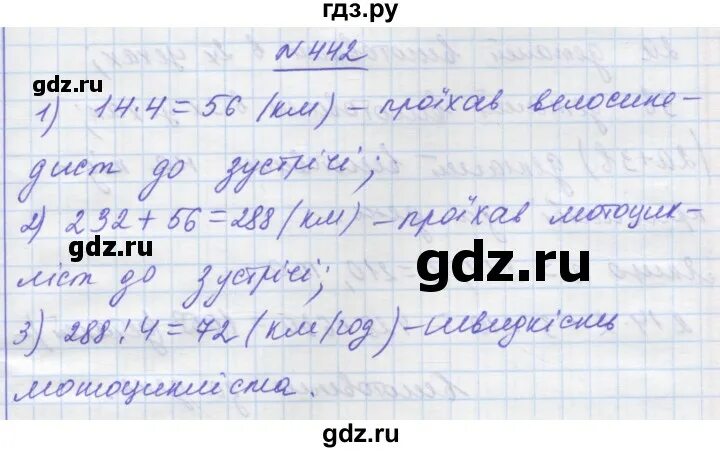 гдз.ру
N 442
gdz.ru
gdz.ru
1) 14·4 = 56 (км) – проїхав велосипе-
дист до зустрічі;
2) 232 + 56 = 288 (км) – проїхав мотоцик-
gdz.ru
gdz.ru
ліст до зустрічі;
3) 288 : 4 = 72 (км/год) – швидкість
мотоцикліста.
gdz.ru
gdz.ru